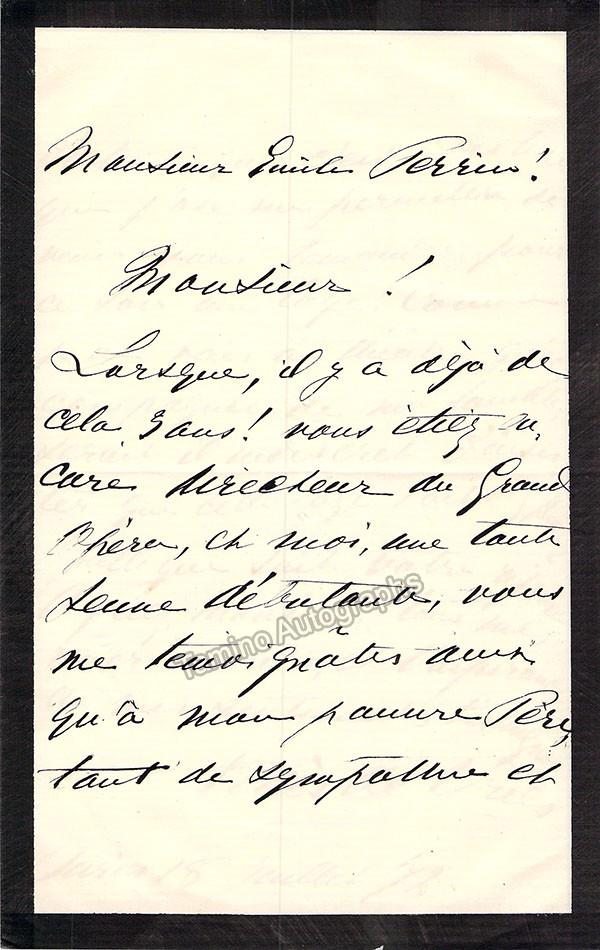 Monsieur Emile Perrin!
Monsieur!
Lorsque, il y a déjà de
cela 3 ans! vous étiez en,
core directeur du Grand
Opéra, et moi, une toute
jeune débutante, vous
me témoignâtes ainsi
qu'à mon pauvre Père,
tant de sympathie et
Tamino Autographs